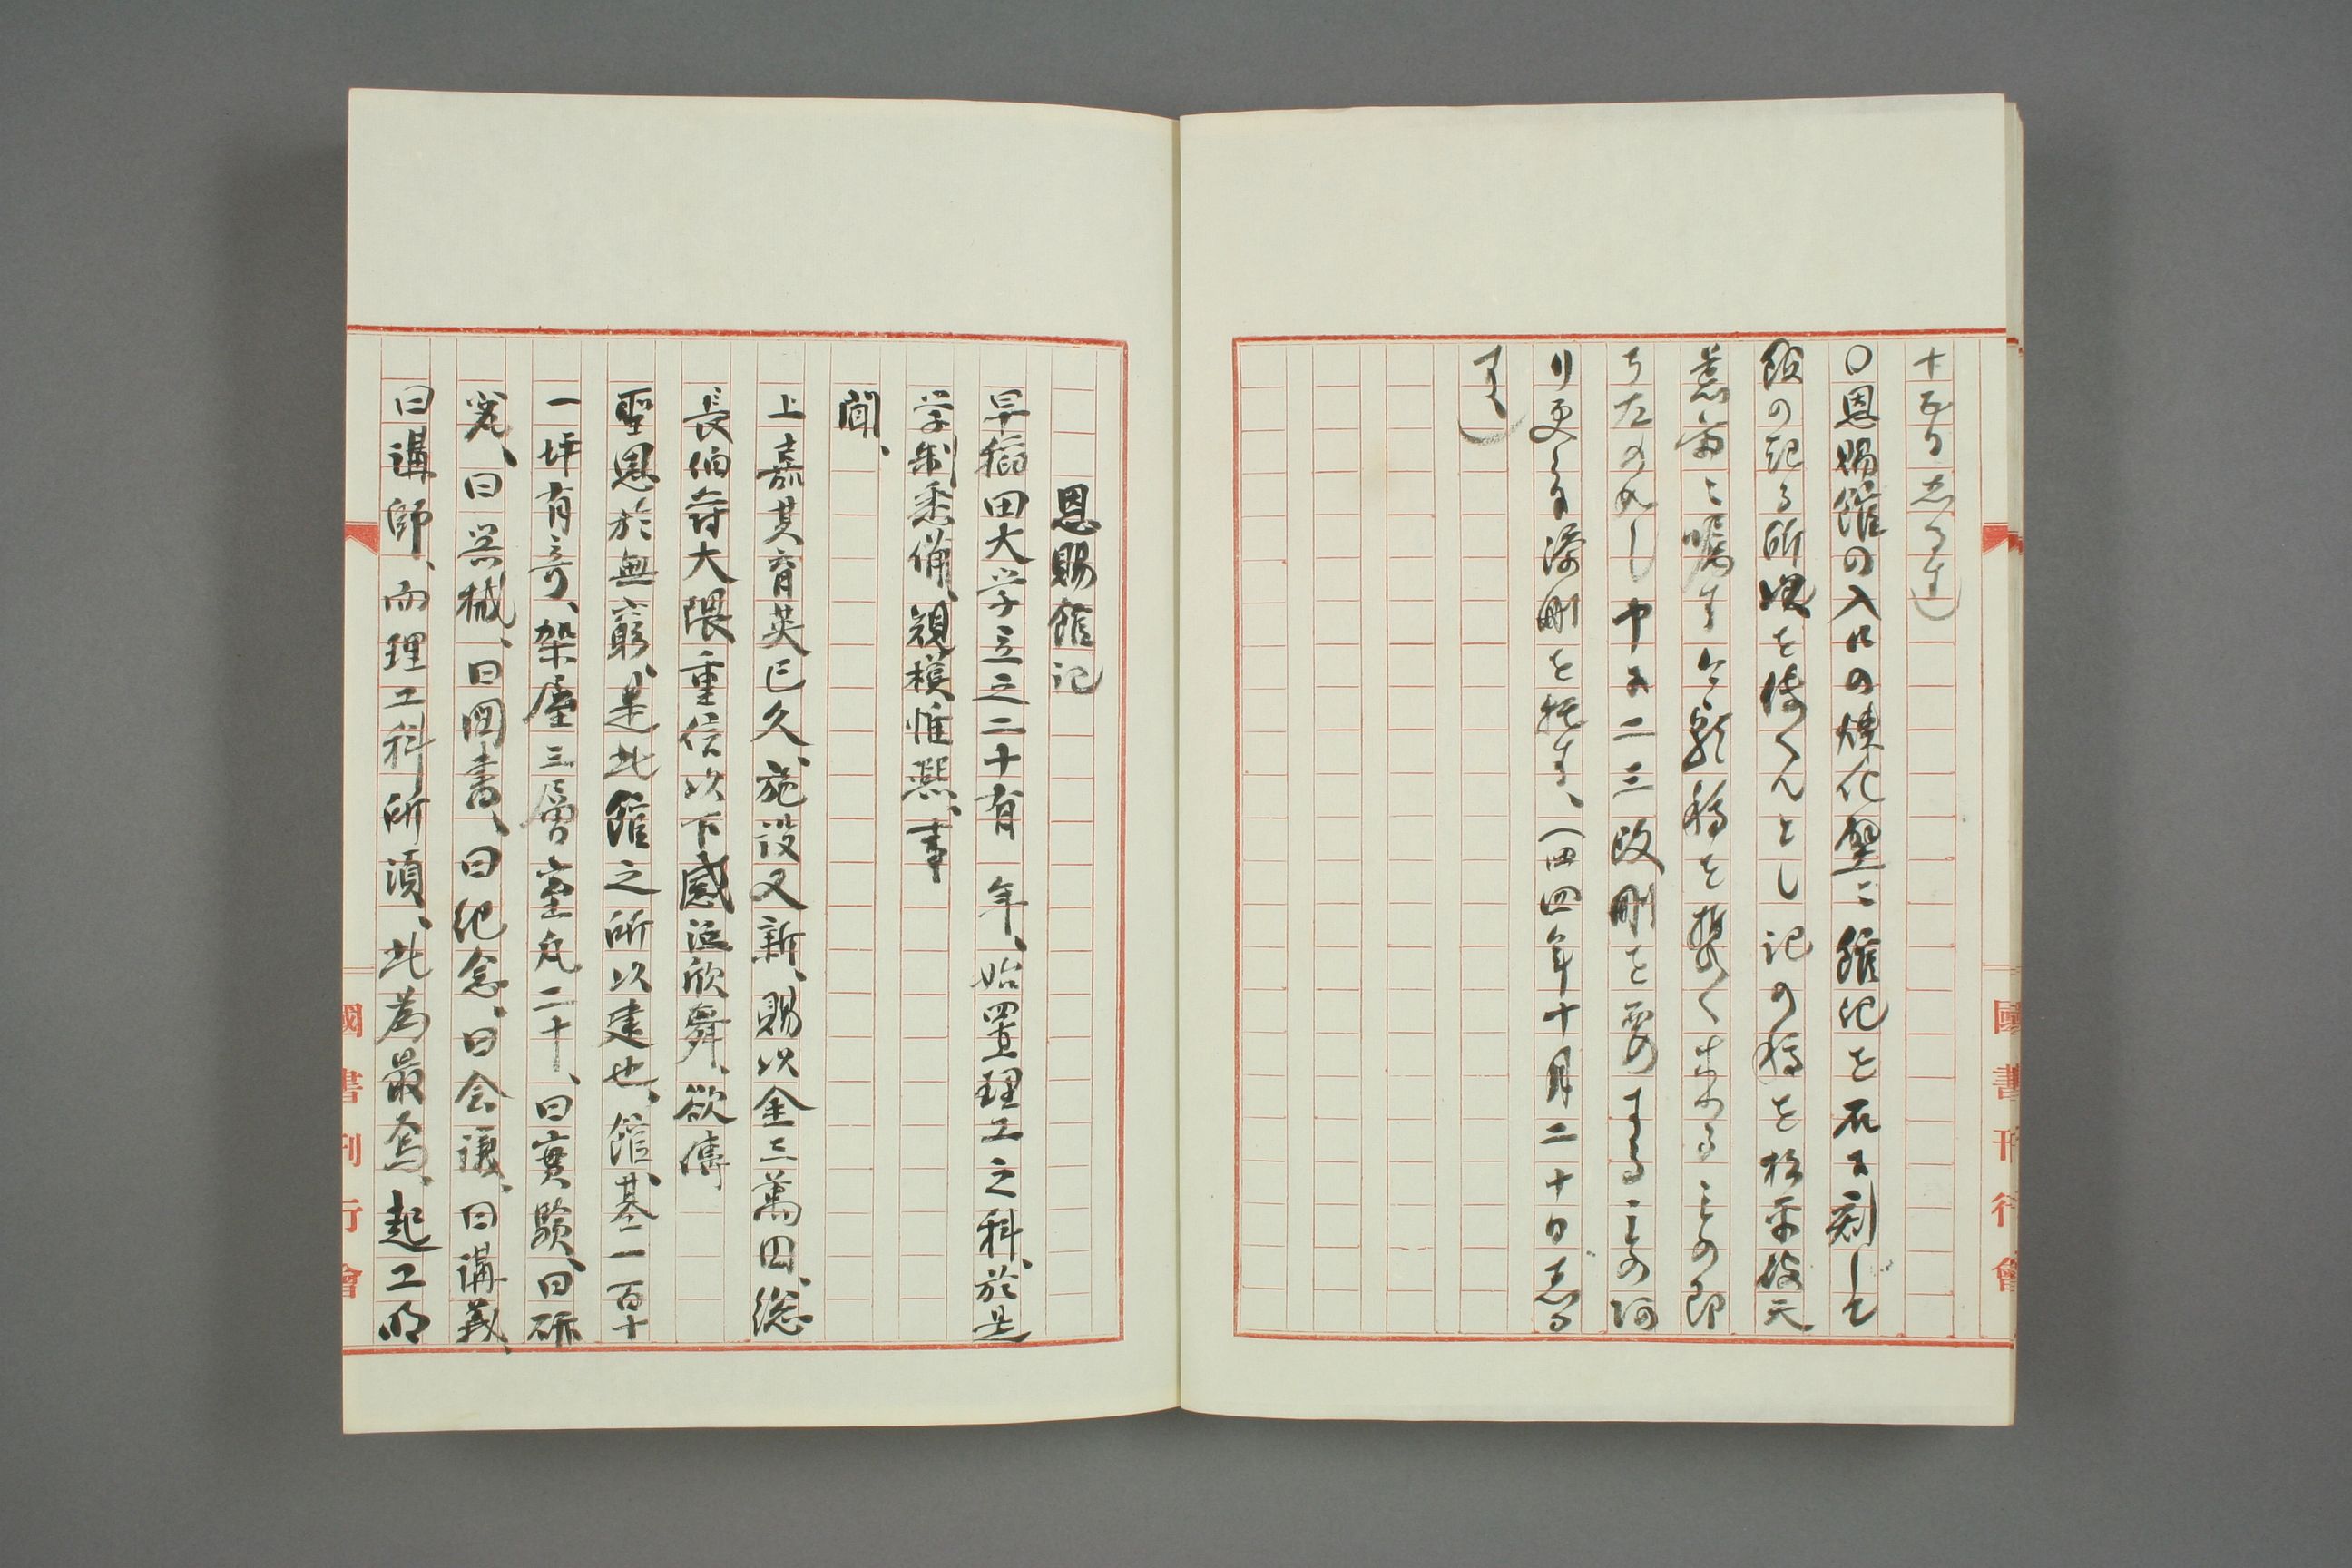 十五日志るす)
〇恩賜館の入口の煉化壁ニ館記を石に刻して
館の起る所以を傳へんとし記の稿を松平破天
荒翁ニ嘱す今朝稿を携へ来る
ち左の如し中に二三改刪を要する
り更に添刪を托す、(四四年十月二十日志る
す)
恩賜館記
早稲田大学立之二十有 年、始置理工之科、於是
学制悉備、規模惟熙、事
聞、
上嘉其育英已久、施設又新、賜以金三萬円、総
長伯爵大隈重信以下感泣欣舞、欲傳
聖恩於無窮、是此館之所以建也、館基一百十
一坪有奇、架屋三層、室凡二十、曰實験、曰研
究、曰器械、曰図書、曰紀念、曰会議、曰講義、
曰講師、而理工科所須、此為最焉、起工明
國書刊行會
國書刊行會